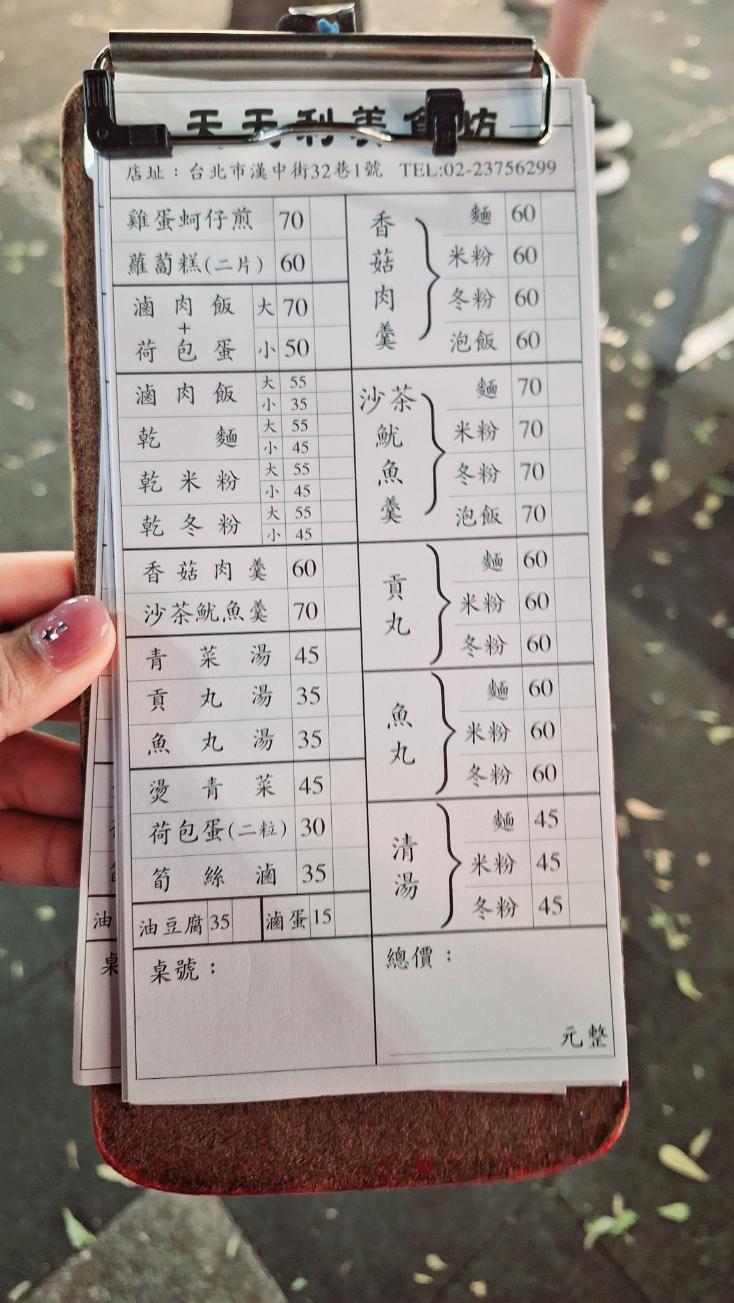 天天利美食坊
店址：台北市漢中街32巷1號 TEL:02-23756299
雞蛋蚵仔煎 70
蘿蔔糕(二片) 60
滷肉飯+荷包蛋 大 70
小 50
滷肉飯 大 55
小 35
乾麵 大 55
小 45
乾米粉 大 55
小 45
乾冬粉 大 55
小 45
香菇肉羹 60
沙茶魷魚羹 70
青菜湯 45
貢丸湯 35
魚丸湯 35
燙青菜 45
荷包蛋(二粒) 30
筍絲滷 35
油豆腐 35 滷蛋 15
桌號：
香菇肉羹
麵 60
米粉 60
冬粉 60
泡飯 60
沙茶魷魚羹
麵 70
米粉 70
冬粉 70
泡飯 70
貢丸
麵 60
米粉 60
冬粉 60
魚丸
麵 60
米粉 60
冬粉 60
清湯
麵 45
米粉 45
冬粉 45
總價：
元整
油
桌